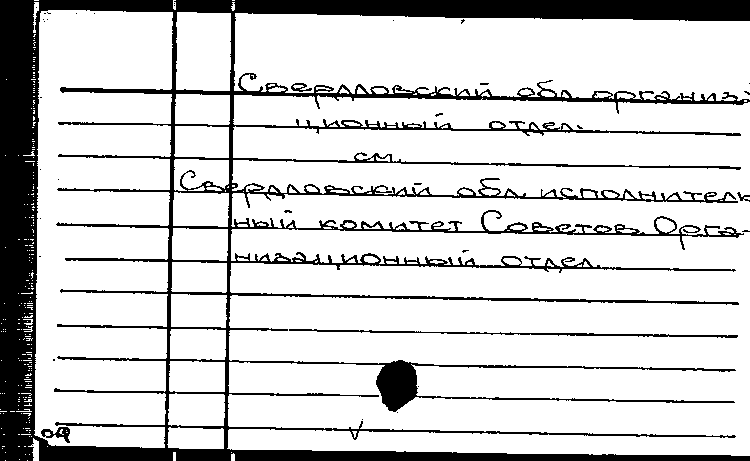 Свердловский обл. организа
ционный отдел.
см.
Свердловский обл. исполнитель
ный комитет Советов. Орга-
низационный отдел.